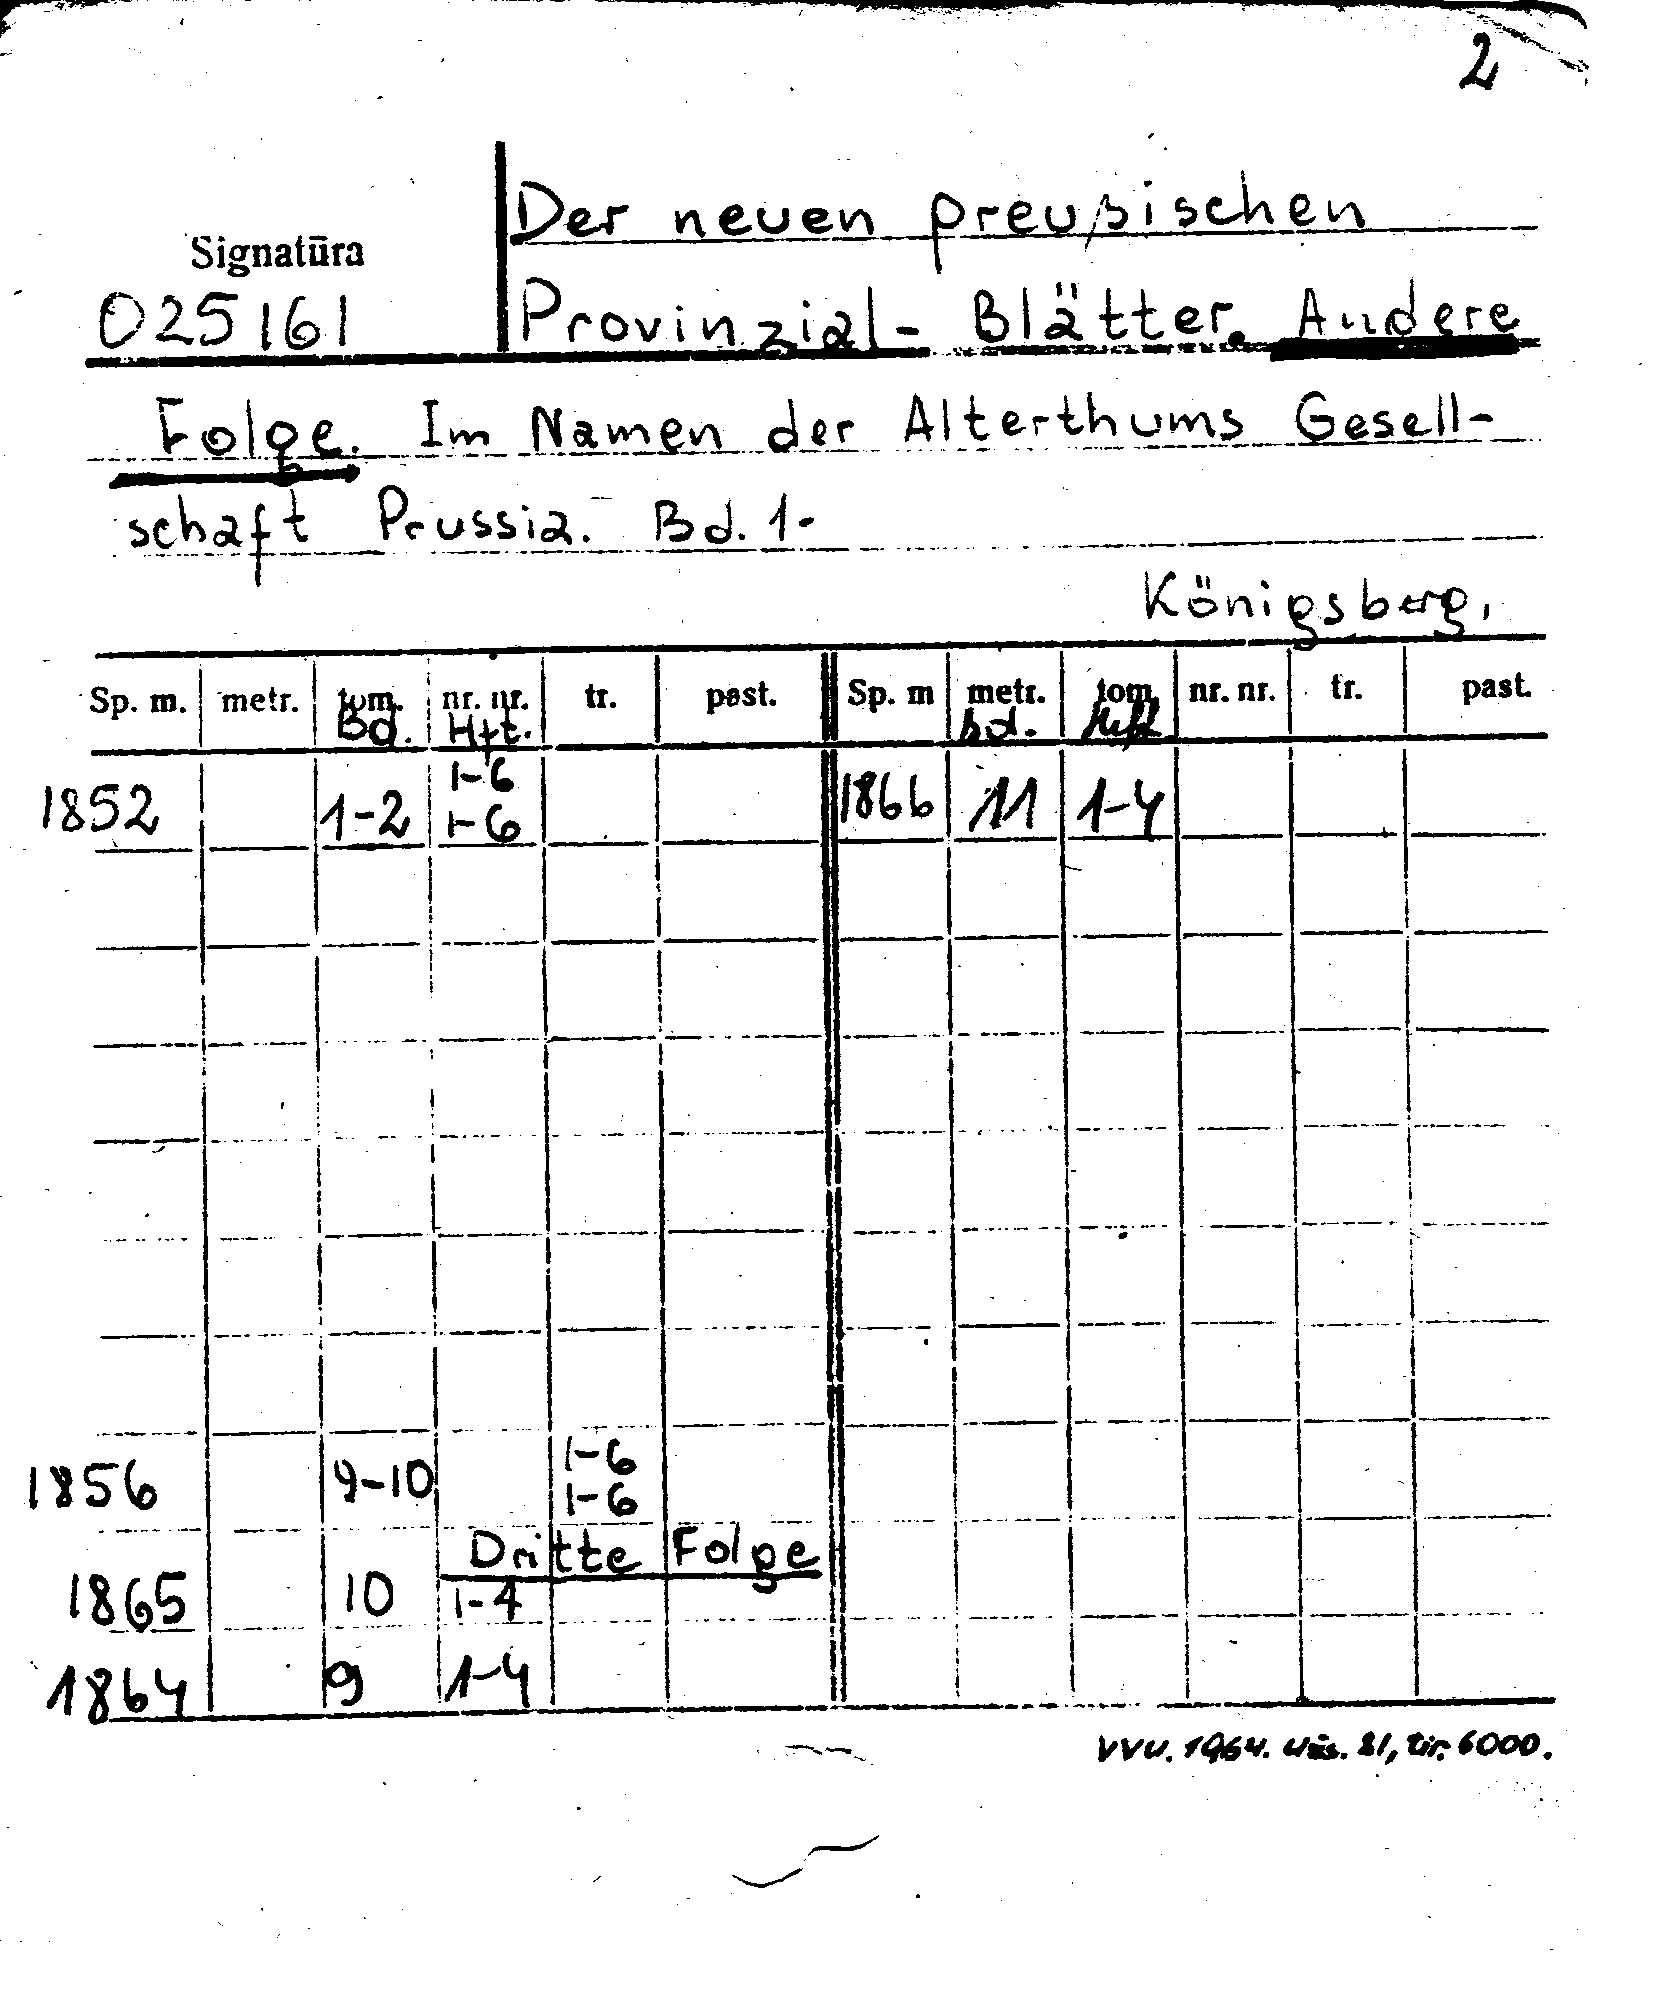 2
Der neuen preußischen
Signatūra
025161
Provinzial- Blätter. Andere
Folge. Im Namen der Alterthums Gesell-
schaft Prussia. Bd. 1-
Königsberg,
Sp. m. metr. tom. nr. nr. tr. past. Sp. m metr. tom. nr. nr. tr. past.
Bd. Hft. Bd. Heft
1-6
1852 1-2 1-6 1866 11 1-4
1-6
1856 9-10 1-6
Dritte Folge
1865 10 1-4
1864 9 1-4
VVU. 1964. Užs. 81, tir. 6000.